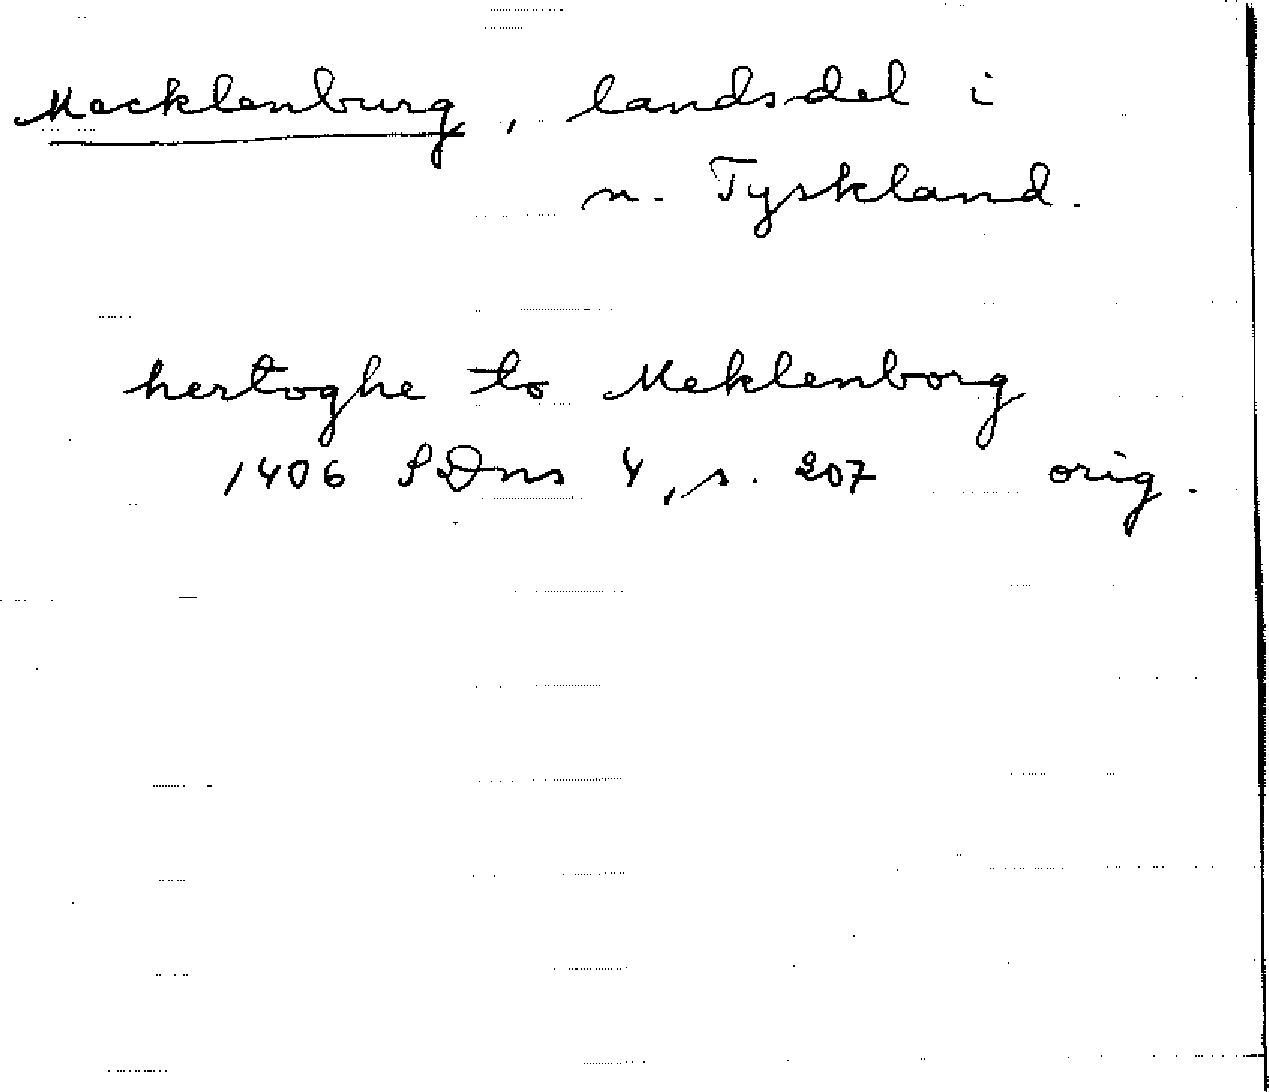 Mecklenburg, landsdel i
n. Tyskland.
hertoghe to Meklenborg
1406 SDns 4, s. 207 orig.